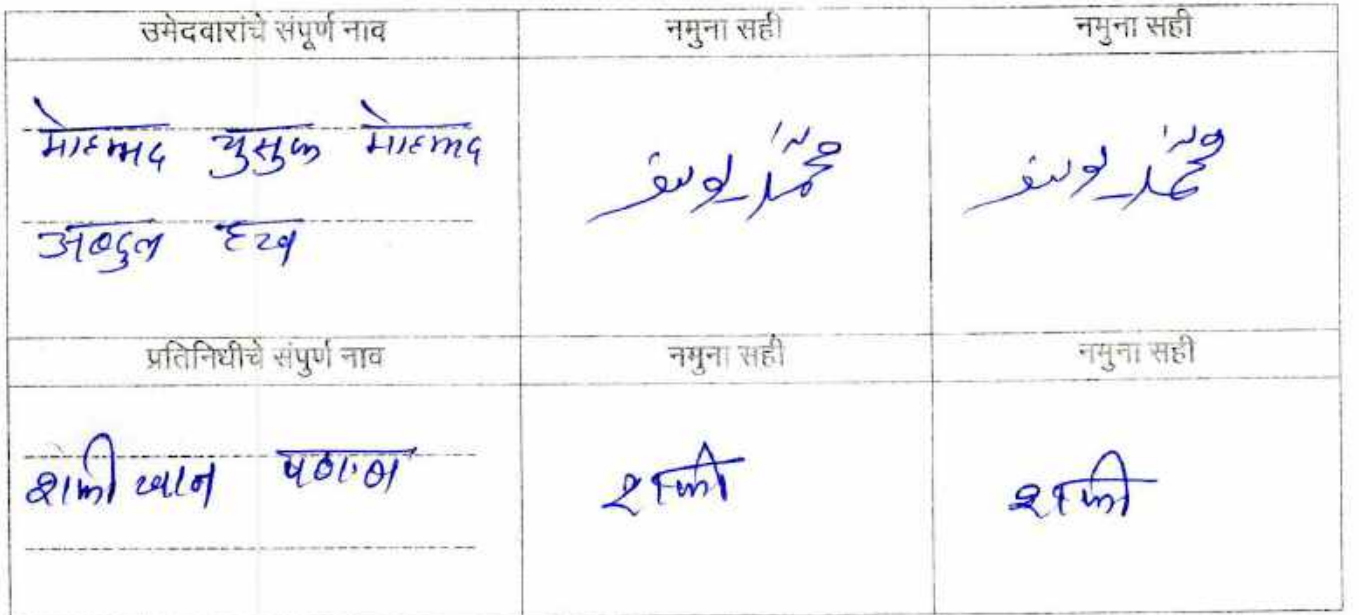 उमेदवारांचे संपूर्ण नाव नमुना सही नमुना सही
मोहम्मद युसुफ मोहम्मद محمد یوسف محمد یوسف
अब्दुल
प्रतिनिधीचे संपुर्ण नाव नमुना सही नमुना सही
शफी खान पठाण शफी शफी